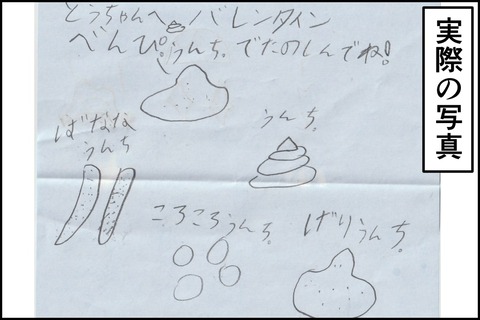 実際の写真
とうちゃんへ バレンタイン
べんぴうんち。でたのしんでね!
ばなな
うんち
うんち。
ころころうんち。
げりうんち。